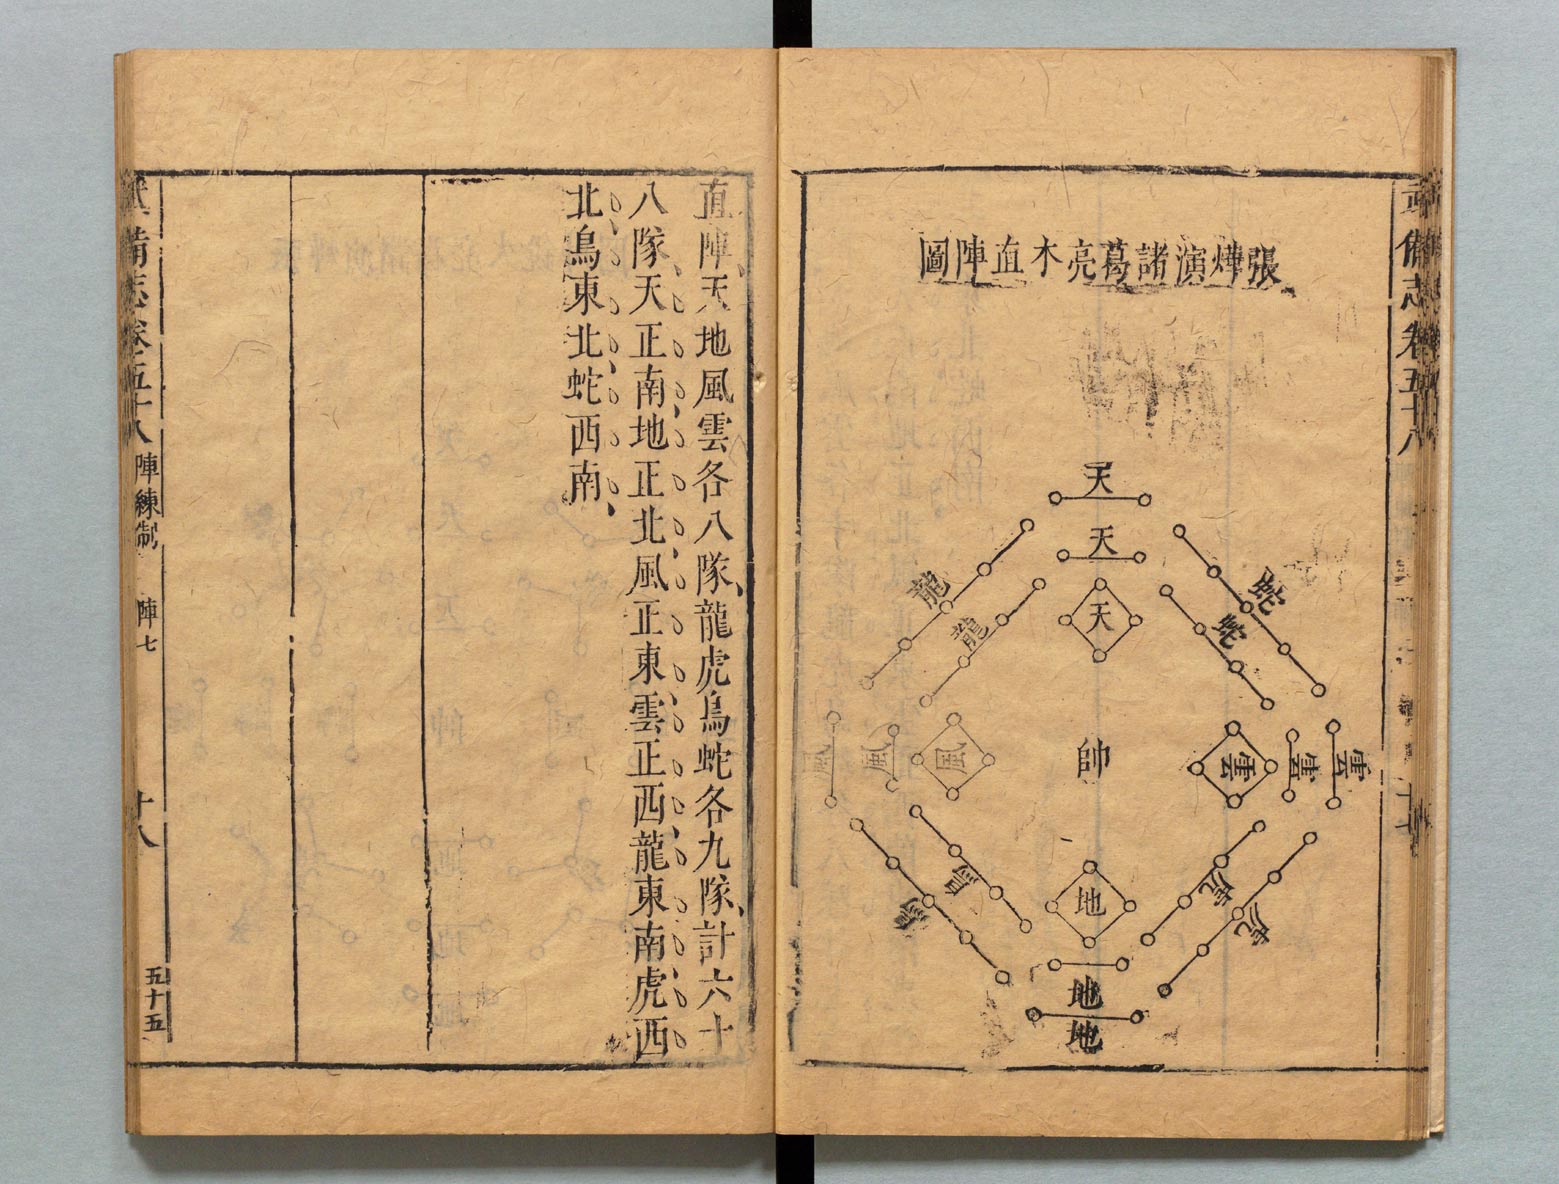 武備志卷五十八
張燁演諸葛亮木直陣圖
天
天
天
蛇
蛇
龍
龍
雲
雲
雲
帥
風
風
風
虎
虎
鳥
鳥
地
地
地
直陣天地風雲各八隊龍虎鳥蛇各九隊計六十
八隊天正南地正北風正東雲正西龍東南虎西
北鳥東北蛇西南
武備志卷五十八 陣練制 陣七 十八 五十五